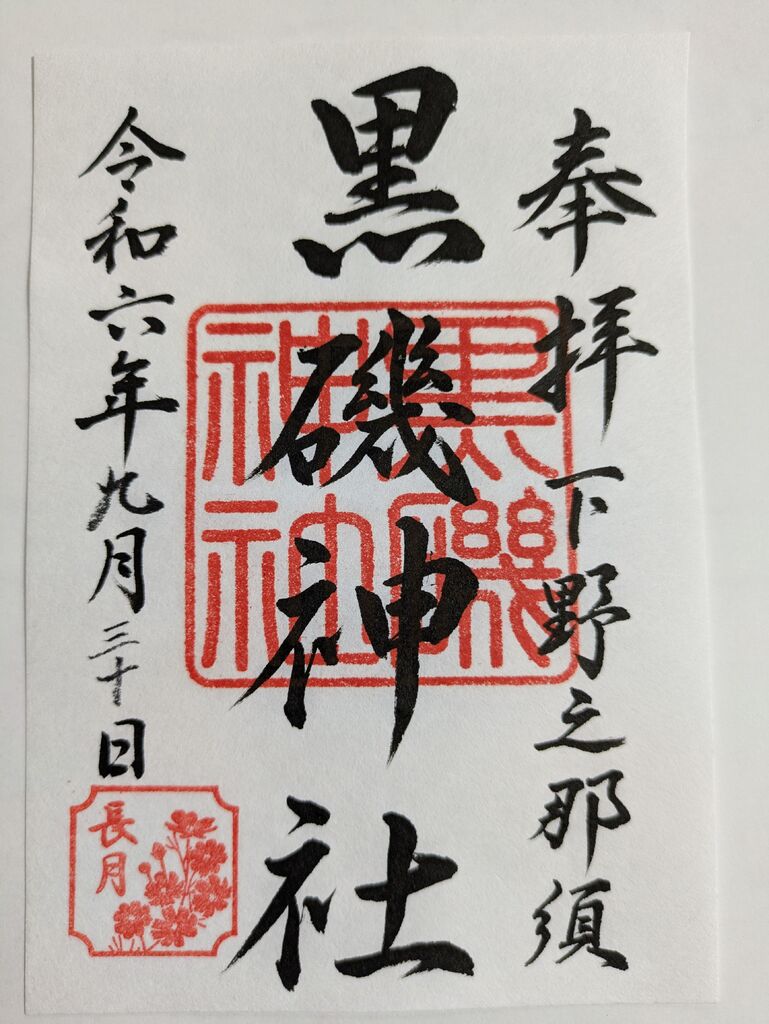 奉拝 下野之那須
黒磯神社
黒磯神社
令和六年九月三十日
長月